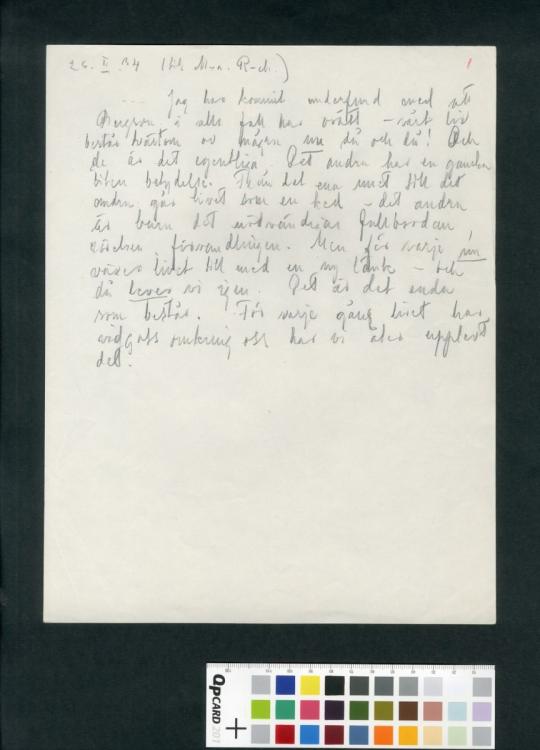 26. II. 34 (till M-a. R-ch.)
1
.... Jag har kommit underfund med att
Bergson i alla fall har orätt – vårt liv
består tvärtom av många nu då och då! Och
de är det egentliga. Det andra har en ganska
liten betydelse. Från det ena nuet till det
andra går livet som en ked – det andra
är bara det nödvändiga fullbordan
förvandlingen. Men för varje nu
växer livet till med en ny länk – och
då lever vi igen. Det är det enda
som består. För varje gång livet har
vidgats omkring oss har vi åter upplevt
det.
QPCARD 201